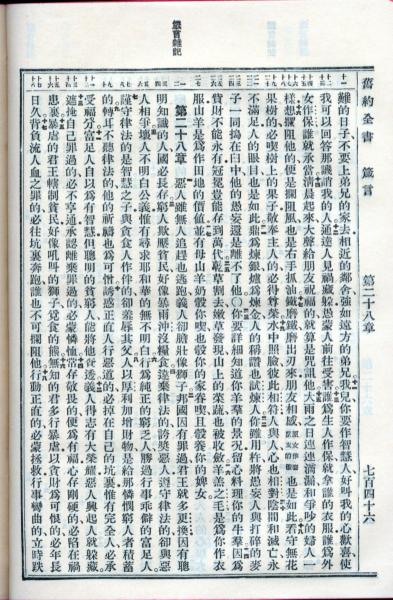 舊約全書 箴言 第二十八章 七百四十六
難的日子不要上弟兄的家去相近的鄰舍強如遠方的弟兄我兒你要作智慧人好叫我的心歡喜使
我可以回答那譏誚我的人通達人見禍藏躲愚蒙人前往受害誰爲生人作保就拿誰的衣服誰爲外
女作保誰就承當清晨起來大聲給朋友祝福的就算是咒詛他大雨之日連連滴漏和爭吵的婦人一
樣想攔阻他的便是攔阻風也是右手抓油鐵磨鐵磨出刃來朋友相感原文作磨朋友的臉也是如此看守無花
果樹的必喫樹上的果子敬奉主人的必得尊榮水中照臉彼此相符人與人心也相對陰間和滅亡永
不滿足人的眼目也是如此鼎爲煉銀爐爲煉金人的稱讚也試煉人你雖用杵將愚妄人與打碎的麥
子一同搗在臼中他的愚妄還是離不了他〇你要詳細知道你羊羣的景況留心料理你的牛羣因爲
貲財不能永有冠冕豈能存到萬代乾草割去嫩草發現山上的菜蔬也被收斂羊羔之毛是爲你作衣
服山羊是爲作田地的價值並有母山羊奶彀你喫也彀你的家眷喫且彀養你的婢女
第二十八章 惡人雖無人追趕也逃跑義人卻膽壯像獅子邦國因有罪過君王就多更換因有聰
明知識的人國必長存窮人欺壓貧民好像暴雨沖沒糧食違棄律法的誇獎惡人遵守律法的卻與惡
人相爭壞人不明白公義惟有尋求耶和華的無不明白行爲純正的窮乏人勝過行事乖僻的富足人
謹守律法的是智慧之子與貪食人作伴的卻羞辱其父人以厚利加增財物是給那憐憫窮人者積蓄
的轉耳不聽律法的他的祈禱也爲可憎誘惑正直人行惡道的必掉在自己的坑裏惟有完全人必承
受福分富足人自以爲有智慧但聰明的貧窮人能將他查透義人得志有大榮耀惡人興起人就躲藏
遮掩自己罪過的必不亨通承認離棄罪過的必蒙憐恤常存敬畏的便爲有福心存剛硬的必陷在禍
患裏暴虐的君王轄制貧民好像吼叫的獅子覓食的熊無知的君多行暴虐以貪財爲可恨的必年長
日久背負流人血之罪的必往坑裏奔跑誰也不可攔阻他行動正直的必蒙拯救行事彎曲的立時跌